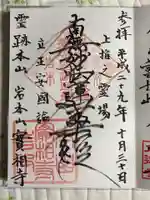 参拝 平成二十九年十月三十日
上擔之霊場
南無妙法蓮華経
立正安國論
霊跡本山 岩本山 實相寺